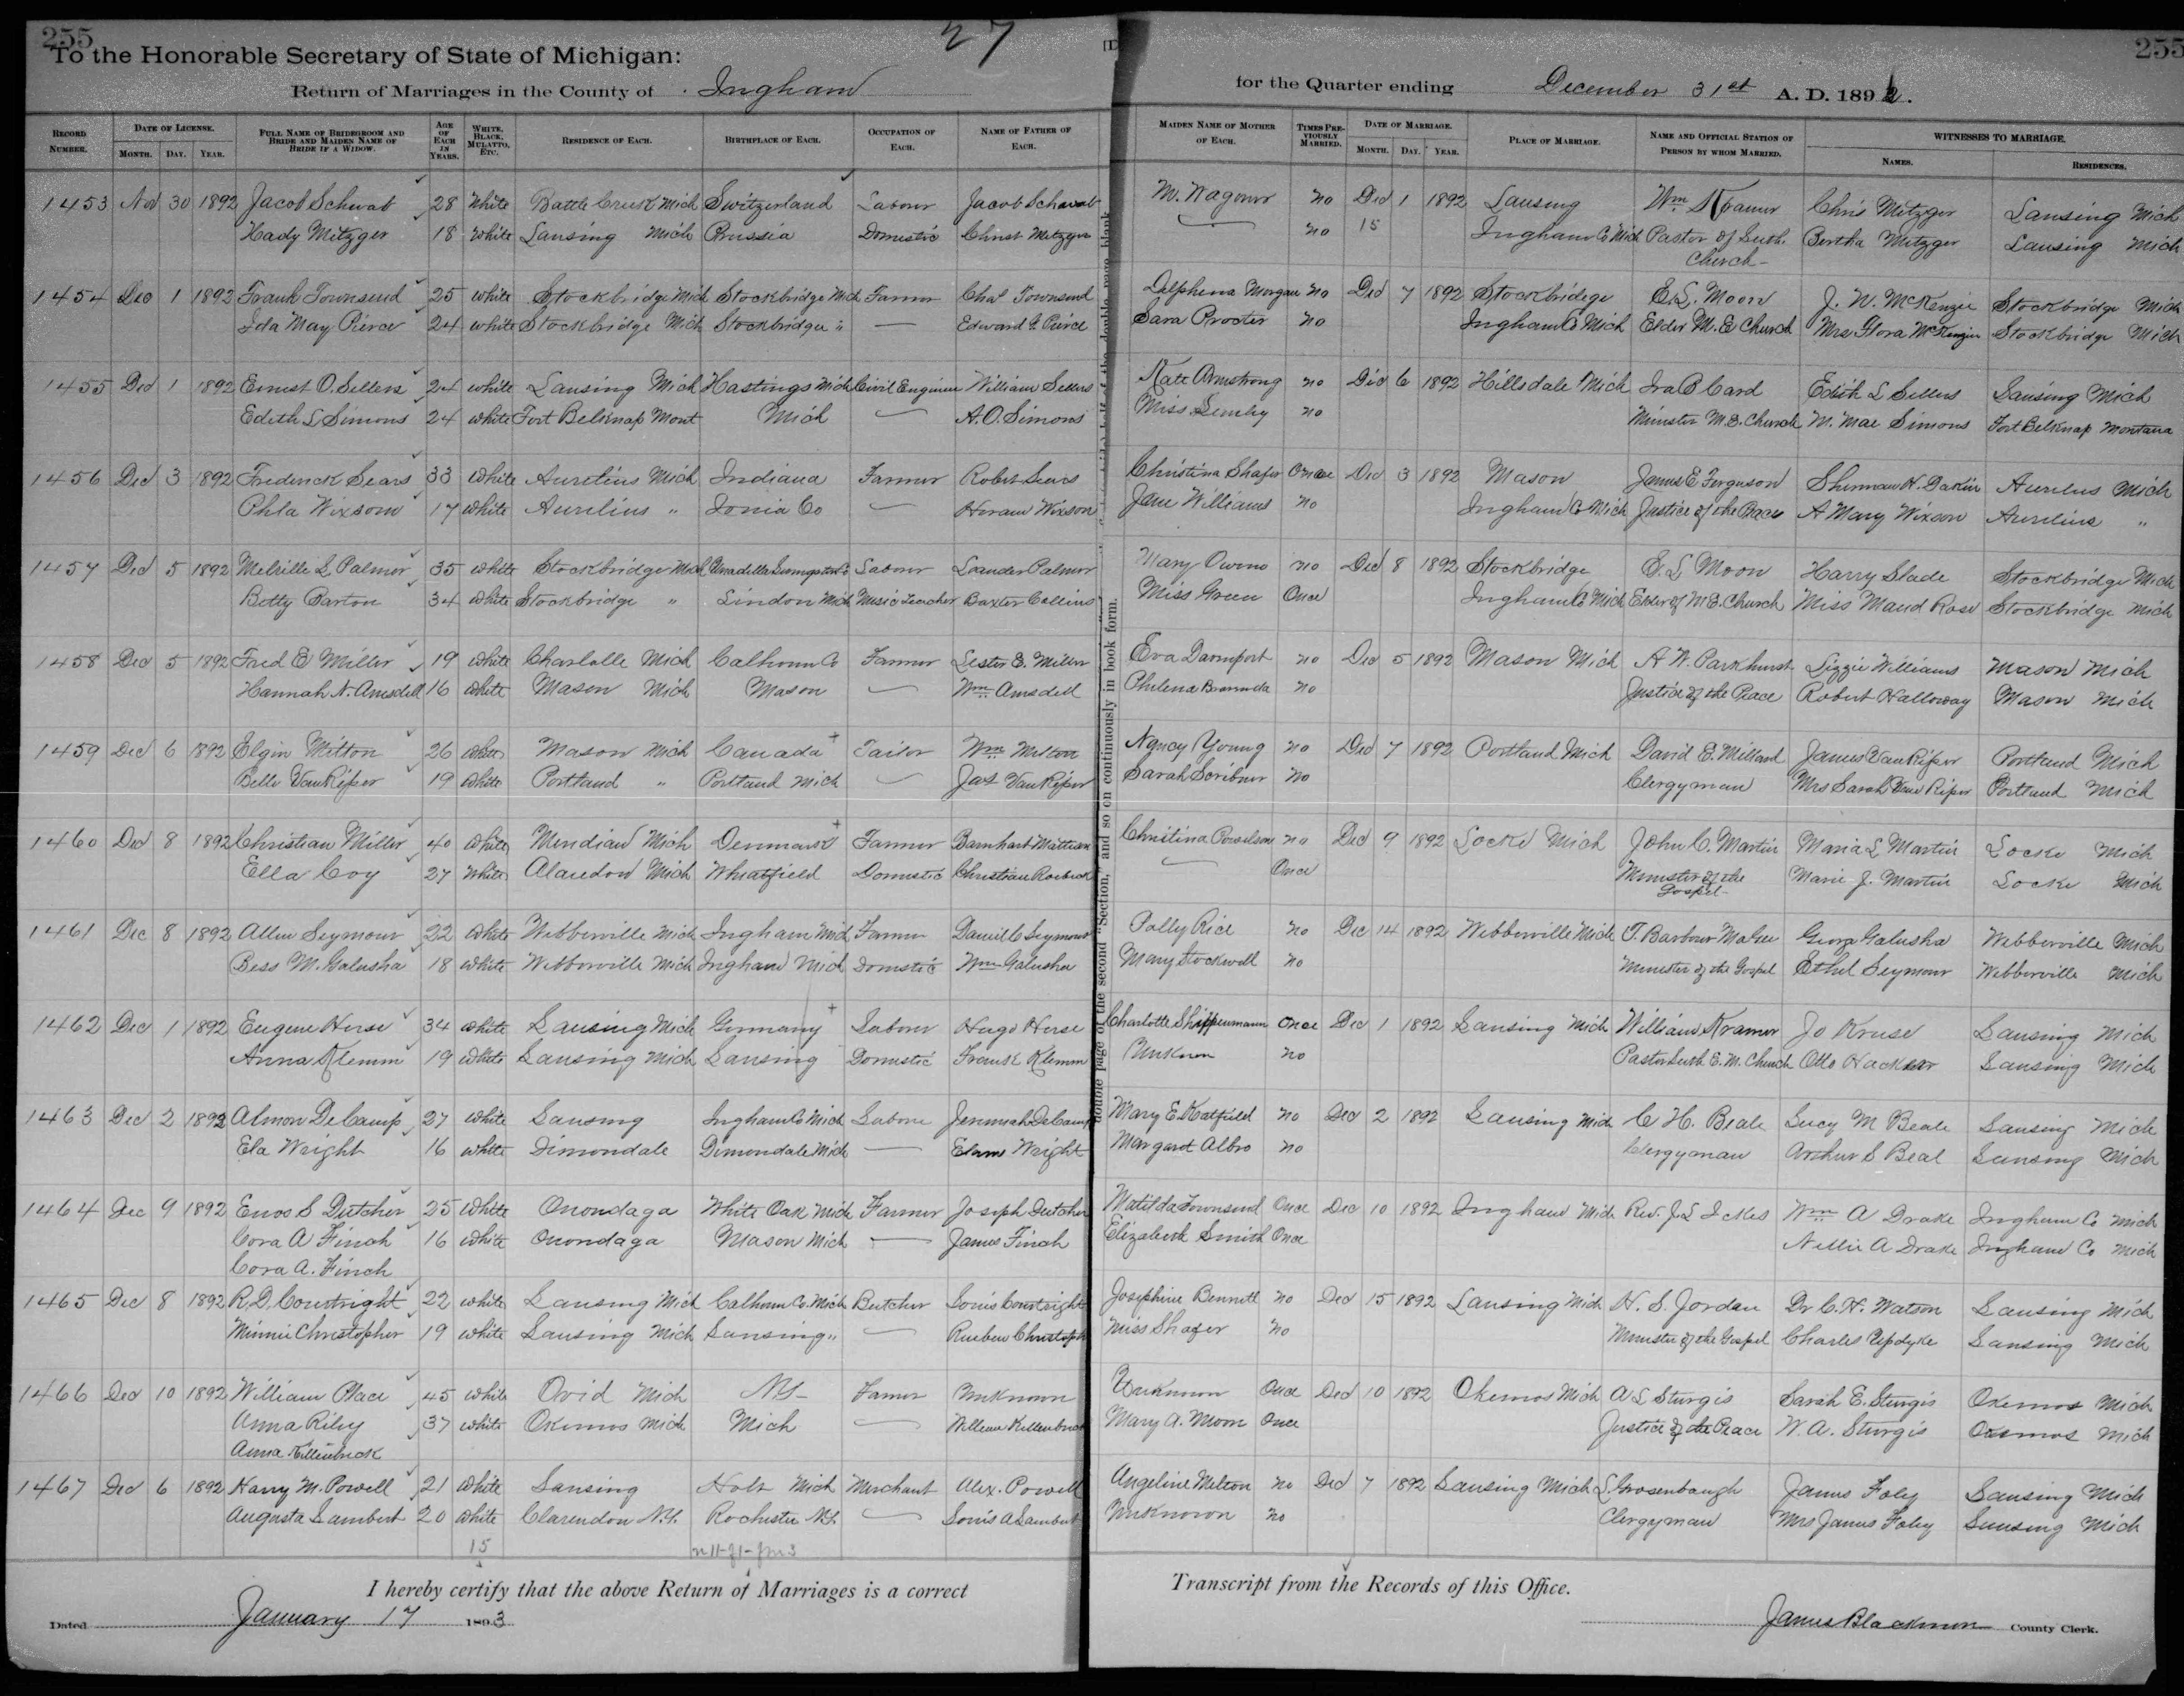 255
27
255
To the Honorable Secretary of State of Michigan:
Return of Marriages in the County of Ingham for the Quarter ending December 31st A. D. 1892.
RECORD NUMBER. DATE OF LICENSE. MONTH. DAY. YEAR. FULL NAME OF BRIDEGROOM AND BRIDE AND MAIDEN NAME OF BRIDE IF A WIDOW. AGE OF EACH IN YEARS. WHITE, BLACK, MULATTO, ETC. RESIDENCE OF EACH. BIRTHPLACE OF EACH. OCCUPATION OF EACH. NAME OF FATHER OF EACH. MAIDEN NAME OF MOTHER OF EACH. TIMES PREVIOUSLY MARRIED. DATE OF MARRIAGE. MONTH. DAY. YEAR. PLACE OF MARRIAGE. NAME AND OFFICIAL STATION OF PERSON BY WHOM MARRIED. WITNESSES TO MARRIAGE. NAMES. RESIDENCES.
1453 Nov 30 1892 Jacob Schwab 28 White Battle Creek Mich Switzerland Labour Jacob Schwab M. Wagoner no Dec 1 1892 Lansing Wm Kramer Chris Metzger Lansing Mich
Hady Metzger 18 White Lansing Mich Prussia Domestic Christ Metzger — no 15 Ingham Co Mich Pastor of Luth. Bertha Metzger Lansing Mich
Church -
1454 Dec 1 1892 Frank Townsend 25 white Stockbridge Mich Stockbridge Mich Farmer Chas Townsend Delphena Morgan no Dec 7 1892 Stockbridge E. L. Moon J. W. McKenzie Stockbridge Mich
Ida May Pierce 24 white Stockbridge Mich Stockbridge " — Edward G. Pierce Sara Procter no Ingham Co Mich Elder M. E Church Mrs Flora McKenzie Stockbridge Mich
1455 Dec 1 1892 Ernest O. Sellers 24 white Lansing Mich Hastings Mich Civil Engineer William Sellers Kate Armstrong no Dec 6 1892 Hillsdale Mich Ira B Card Edith L Sellers Lansing Mich
Edith L Simons 24 white Fort Belknap Mont Mich — A. O. Simons Miss no Minister M. E. Church M. Mae Simons Fort Belknap Montana
1456 Dec 3 1892 Frederick Sears 33 white Aurelius Mich Indiana Farmer Robert Sears Christina Shafer Once Dec 3 1892 Mason James E Ferguson Sherman H. Dakin Aurelius Mich
Phla Wixsom 17 white Aurelius " Ionia Co — Hiram Wixson Jane Williams no Ingham Co Mich Justice of the Peace A Mary Wixson Aurelius "
1457 Dec 5 1892 Melville L Palmer 35 white Stockbridge Mich Unadilla Livingston Co Labour Leander Palmer Mary Owens no Dec 8 1892 Stockbridge E. L Moon Harry Slade Stockbridge Mich
Betty Barton 34 white Stockbridge " Lindon Mich Music Teacher Baxter Collins Miss Green Once Ingham Co Mich Elder of M. E. Church Miss Maud Rose Stockbridge Mich
1458 Dec 5 1892 Fred E Miller 19 white Charlotte Mich Calhoun Co Farmer Lester E. Miller Eva Davenport no Dec 5 1892 Mason Mich A W. Parkhurst Lizzie Williams Mason Mich
Hannah N. Amsdell 16 white Mason Mich Mason — Wm Amsdell Philena no Justice of the Peace Robert Halloway Mason Mich
1459 Dec 6 1892 Elgin Mitton 26 white Mason Mich Canada Tailor Wm Mitton Nancy Young no Dec 7 1892 Portland Mich David E. Millard James VanRiper Portland Mich
Belle VanRiper 19 white Portland " Portland Mich — Jas VanRiper Sarah Scribner no Clergyman Mrs Sarah Van Riper Portland Mich
1460 Dec 8 1892 Christian Miller 40 white Meridian Mich Denmark Farmer Barnhart Christina no Dec 9 1892 Locke Mich John C. Martin Maria L Martin Locke Mich
Ella Coy 27 White Alaiedon Mich Wheatfield Domestic Christian Roebuck — Once Minister of the Marie J. Martin Locke Mich
Gospel -
1461 Dec 8 1892 Allen Seymour 22 white Webberville Mich Ingham Mich Farmer Daniel C Seymour Polly Rice no Dec 14 1892 Webberville Mich T. Barbour George Galusha Webberville Mich
Bess M. Galusha 18 white Webberville Mich Ingham Mich Domestic Wm Galusha Mary Stockwell no Minister of the Gospel Ethel Seymour Webberville Mich
1462 Dec 1 1892 Eugene Herse 34 white Lansing Mich Germany Labour Hugo Herse Charlotte Shippenmann Once Dec 1 1892 Lansing Mich William Kramer Jo Kruse Lansing Mich
Anna Klemm 19 White Lansing Mich Lansing Domestic Frank Klemm Unknown no Pastor Luth E. M. Church Otto Hacker Lansing Mich
1463 Dec 2 1892 Almon DeCamp 27 white Lansing Ingham Co Mich Labour Jeremiah DeCamp Mary E Hatfield no Dec 2 1892 Lansing Mich C. H. Beale Lucy M Beale Lansing Mich
Ela Wright 16 white Dimondale Dimondale Mich — Elam Wright Margaret Albro no Clergyman Arthur S Beal Lansing Mich
1464 Dec 9 1892 Enos S Dutcher 25 white Onondaga White Oak Mich Farmer Joseph Dutcher Matilda Townsend Once Dec 10 1892 Ingham Mich Rev. J. L Ickes Wm A Drake Ingham Co Mich
Cora A Finch 16 white Onondaga Mason Mich — James Finch Elizabeth Smith Once Nellie A Drake Ingham Co Mich
Cora A. Finch
1465 Dec 8 1892 R. D. Courtright 22 white Lansing Mich Calhoun Co. Mich Butcher Louis Courtright Josephine Bennett no Dec 15 1892 Lansing Mich H. S. Jordan Dr C. H. Watson Lansing Mich
Minnie Christopher 19 white Lansing Mich Lansing " — Rueben Christoph Miss Shafer no Minister of the Gospel Charles Updyke Lansing Mich
1466 Dec 10 1892 William Place 45 white Ovid Mich N.Y- Farmer Unknown Unknown Once Dec 10 1892 Okemos Mich A L Sturgis Sarah E. Sturgis Okemos Mich
Anna Riley 37 white Okemos Mich Mich — William Mary A. Moon Once Justice of the Peace W. A. Sturgis Okemos Mich
Anna Killinbeck
1467 Dec 6 1892 Harry M. Powell 21 white Lansing Holt Mich Merchant Alex. Powell Angeline Melton no Dec 7 1892 Lansing Mich L Grosenbaugh James Foley Lansing Mich
Augusta Lambert 20 white Clarendon N.Y. Rochester N.Y. — Louis A Lambert Unknown no Clergyman Mrs James Foley Lansing Mich
15
I hereby certify that the above Return of Marriages is a correct Transcript from the Records of this Office.
Dated January 17 1893 James Blackmon County Clerk.
double page of the second "Section," and so on continuously in book form.